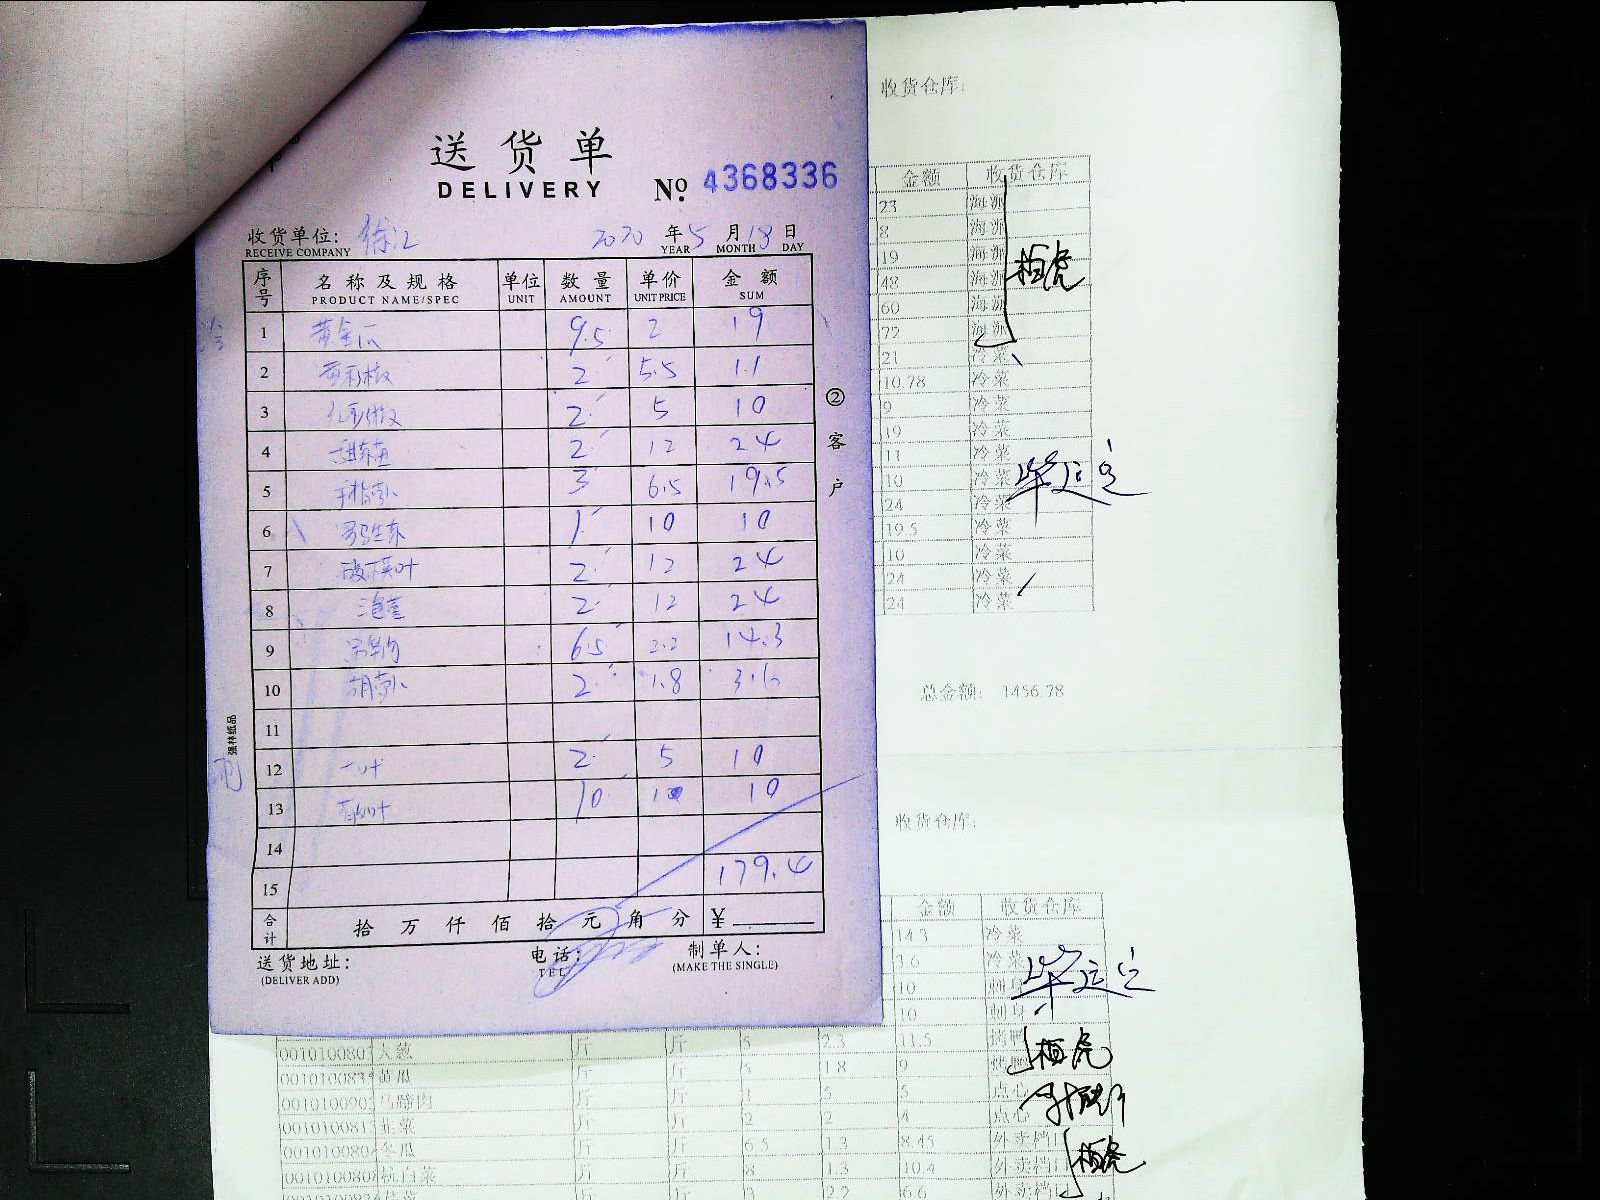 收货仓库:
送货单
DELIVERY
№ 4368336
收货单位: 徐汇 2020 年 5 月 18 日
RECEIVE COMPANY YEAR MONTH DAY
序号 名称及规格 单位 数量 单价 金额
PRODUCT NAME/SPEC UNIT AMOUNT UNIT PRICE SUM
1 黄金瓜 9.5 2 19
2 黄彩椒 2 5.5 11
3 红彩椒 2 5 10
4 2 12 24
5 手指萝卜 3 6.5 19.5
6 罗马生菜 1 10 10
7 酸模叶 2 12 24
8 2 12 24
9 6.5 2.2 14.3
10 胡萝卜 2 1.8 3.6
11
12 2 5 10
13 10 1 10
14
15 179.4
合计 拾 万 仟 佰 拾 元 角 分 ¥
送货地址: 电话: 制单人:
(DELIVER ADD) TEL (MAKE THE SINGLE)
② 客户
强林纸品
金额 收货仓库
23 海派
8 海派
19 海派
48 海派
60 海派
72 海派
21 冷菜
10.78 冷菜
9 冷菜
19 冷菜
11 冷菜
10 冷菜
24 冷菜
19.5 冷菜
10 冷菜
24 冷菜
24 冷菜
总金额: 1456.78
收货仓库:
金额 收货仓库
14.3 冷菜
3.6 冷菜
10 刺身
10 刺身
大葱 斤 斤 5 2.3 11.5 烤鸭
黄瓜 斤 斤 5 1.8 9 烤鸭
马蹄肉 斤 斤 1 5 5 点心
韭菜 斤 斤 2 2 4 点心
冬瓜 斤 斤 6.5 1.3 8.45 外卖档口
杭白菜 斤 斤 8 1.3 10.4 外卖档口
斤 斤 3 2.2 6.6 外卖档口